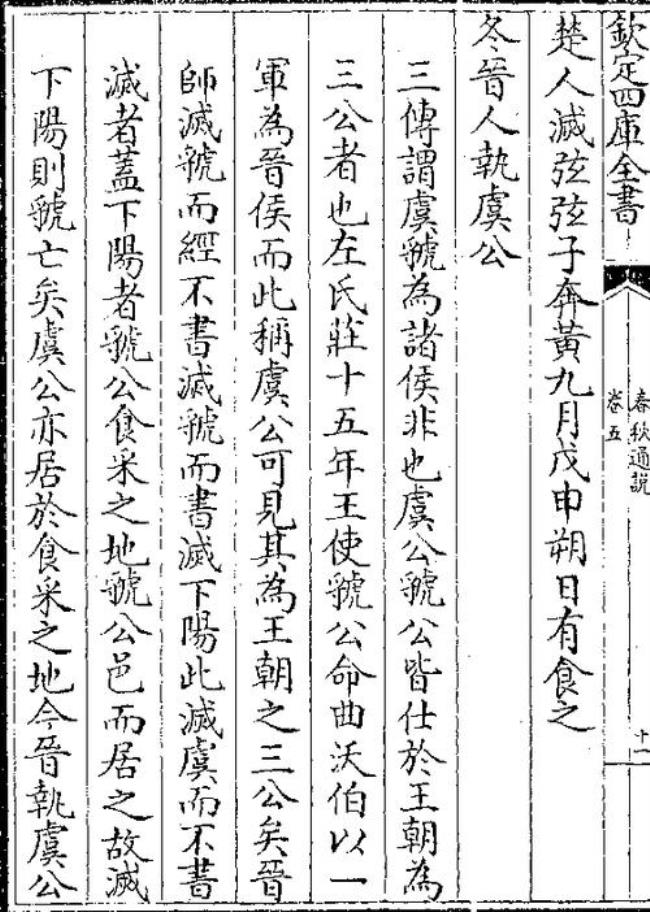 欽定四庫全書
春秋通說
卷五
十一
楚人滅弦弦子奔黃九月戊申朔日有食之
冬晉人執虞公
三傳謂虞虢為諸侯非也虞公虢公皆仕於王朝為
三公者也左氏莊十五年王使虢公命曲沃伯以一
軍為晉侯而此稱虞公可見其為王朝之三公矣晉
師滅虢而經不書滅虢而書滅下陽此滅虞而不書
滅者蓋下陽者虢公食采之地虢公邑而居之故滅
下陽則虢亡矣虞公亦居於食采之地今晉執虞公